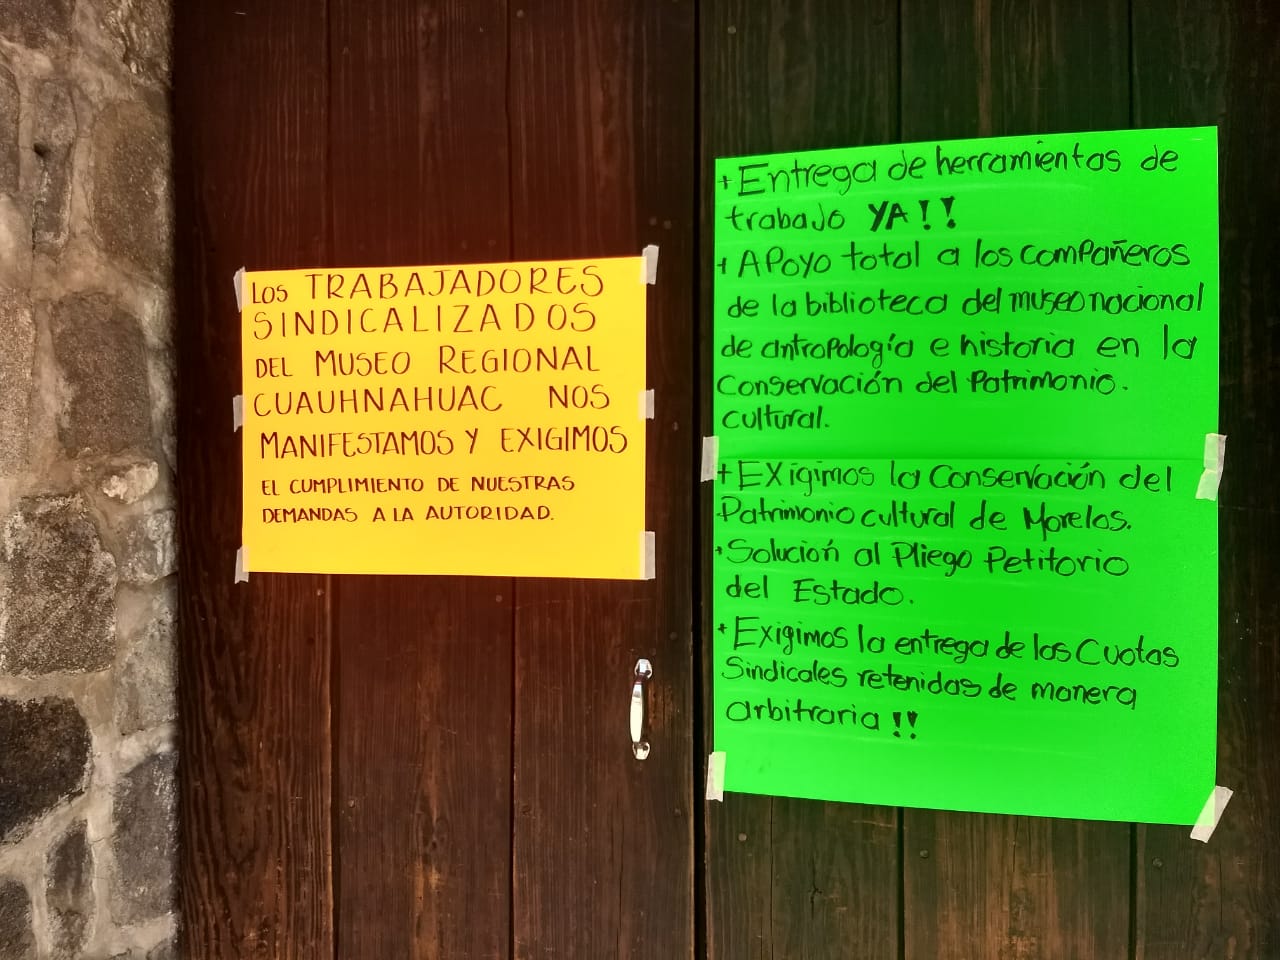 Los TRABAJADORES
SINDICALIZADOS
DEL MUSEO REGIONAL
CUAUHNAHUAC NOS
MANIFESTAMOS Y EXIGIMOS
EL CUMPLIMIENTO DE NUESTRAS
DEMANDAS A LA AUTORIDAD.
+ Entrega de herramientas de
trabajo YA!!
+ APoyo total a los comPañeros
de la biblioteca del museo nacional
de antropología e historia en la
Conservación del Patrimonio.
cultural.
+ EXigimos la Conservación del
Patrimonio cultural de Morelos.
+ Solución al Pliego Petitorio
del Estado.
+ Exigimos la entrega de las Cuotas
Sindicales retenidas de manera
arbitraria!!